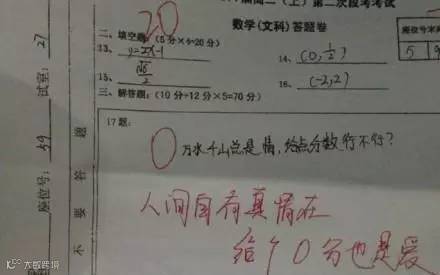 20
(上)第二次段考考试
数学(文科)答题卷
二、填空题:(5分×4=20分)
13、y=2x-1
14、(0,1/2)
15、
16、(-2,2)
三、解答题:(10分+12分×5=70分)
17题:
0 万水千山总是情,给点分数行不行?
人间自有真情在
给个0分也是爱
试室:27
座位号:59
不要答题